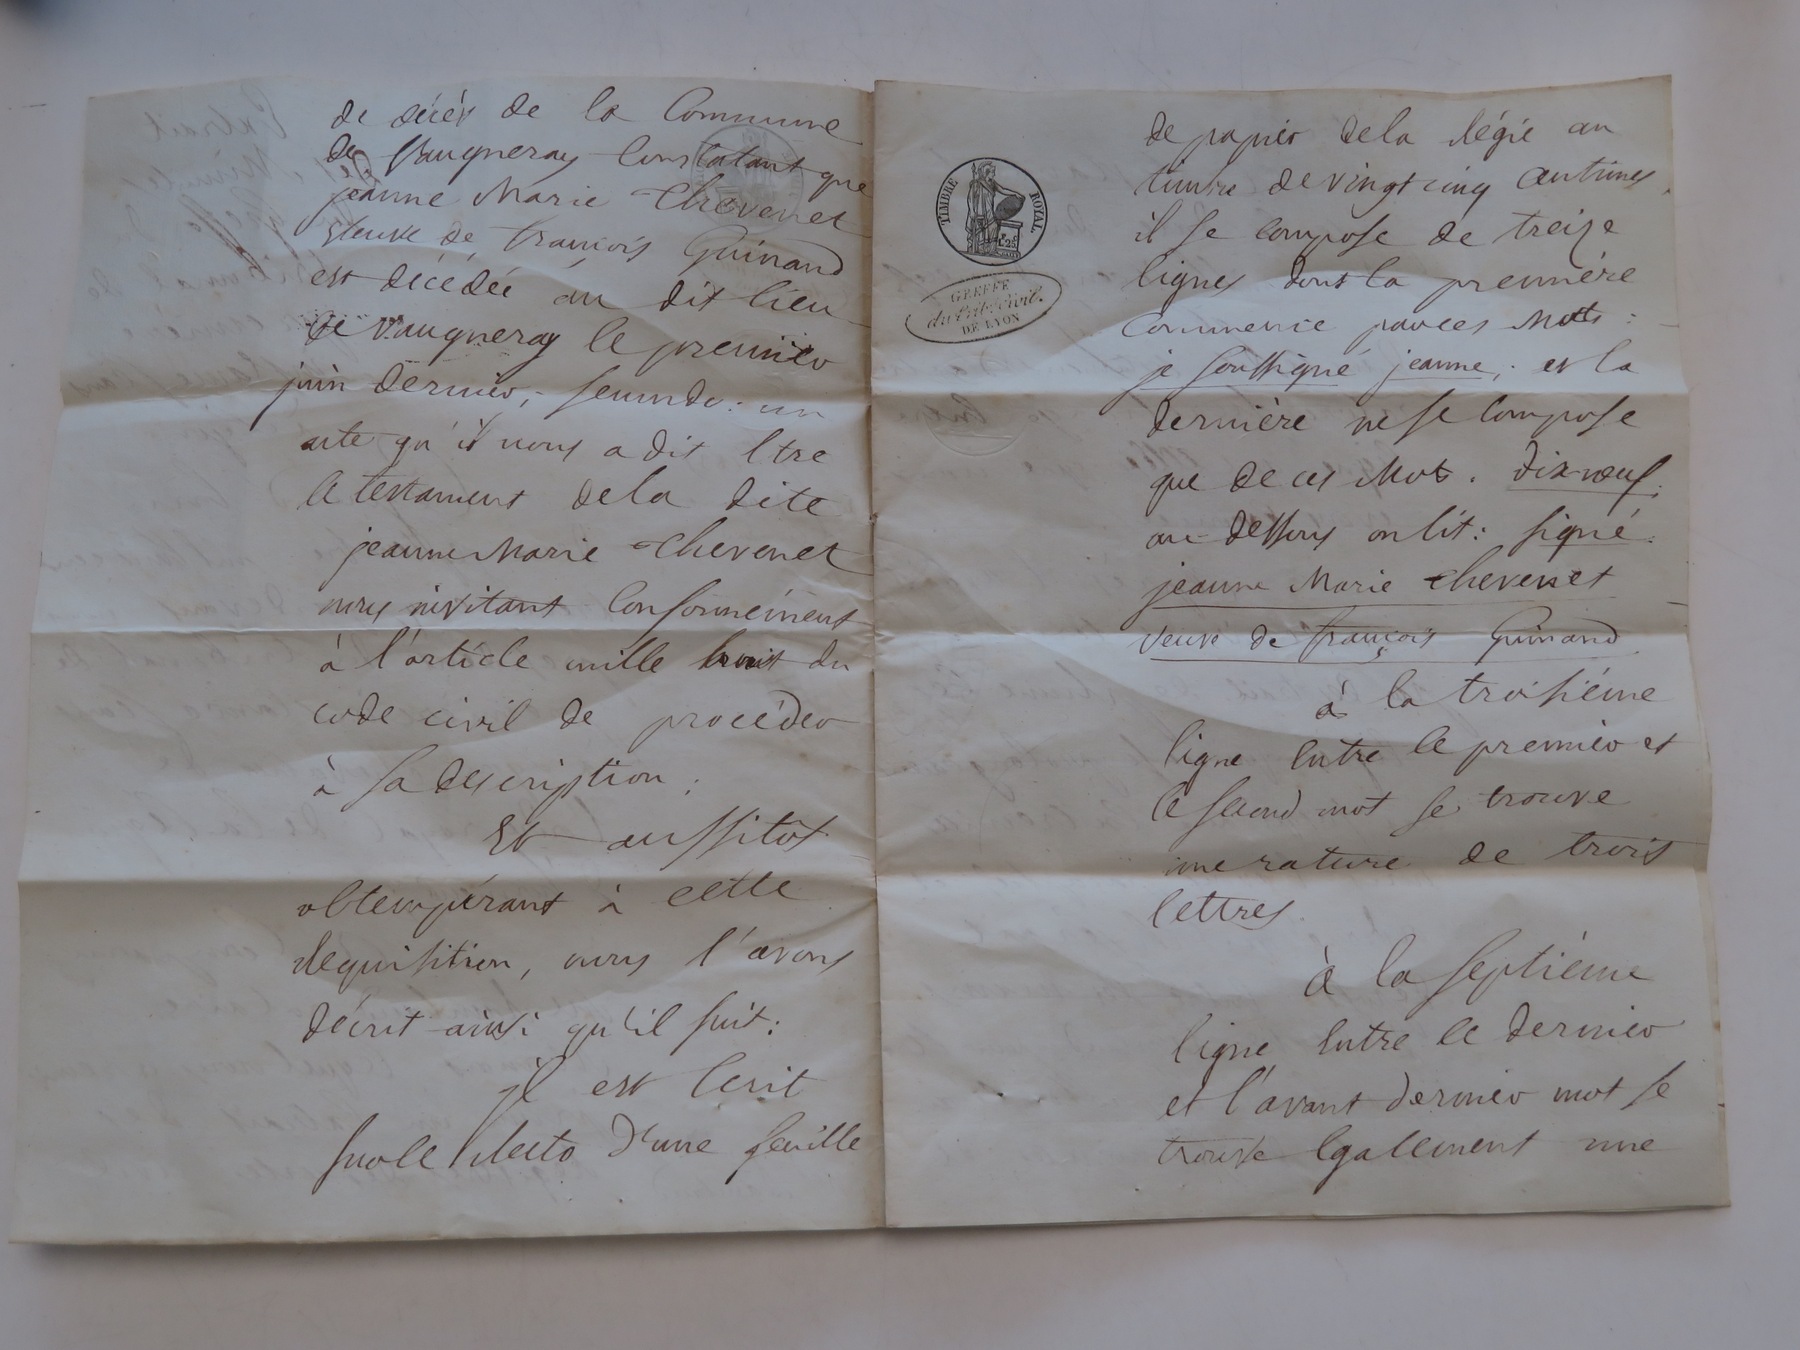 de décès de la Commune
de Vaugneray Constatant que
jeanne Marie Chevenet
veuve de françois Guinand
est décédée au dit lieu
de Vaugneray le premier
juin dernier; secundo: un
acte qu'il nous a dit Etre
le testament de la dite
jeanne Marie Chevenet
nous invitant Conformément
à l'article mille huit du
code civil de procéder
à sa description;
Et aussitôt
obtempérant à cette
Requisition, nous l'avons
décrit ainsi qu'il suit:
jl est Ecrit
sur le Recto d'une feuille
TIMBRE ROYAL
1.F 25.C
GREFFE
du trib. civil.
DE LYON
de papier de la Régie au
timbre de vingt cinq Centimes,
il se compose de treize
lignes dont la première
Commence par ces Mots:
je soussigné jeanne; et la
dernière ne se Compose
que de ces Mots. dix-neuf;
au-dessous on lit: signé:
jeanne Marie Chevenet
veuve de françois Guinand
à la troisième
ligne Entre le premier et
le second mot se trouve
une rature de trois
lettres.
à la septième
ligne Entre le dernier
et l'avant dernier mot se
trouve Egalement une